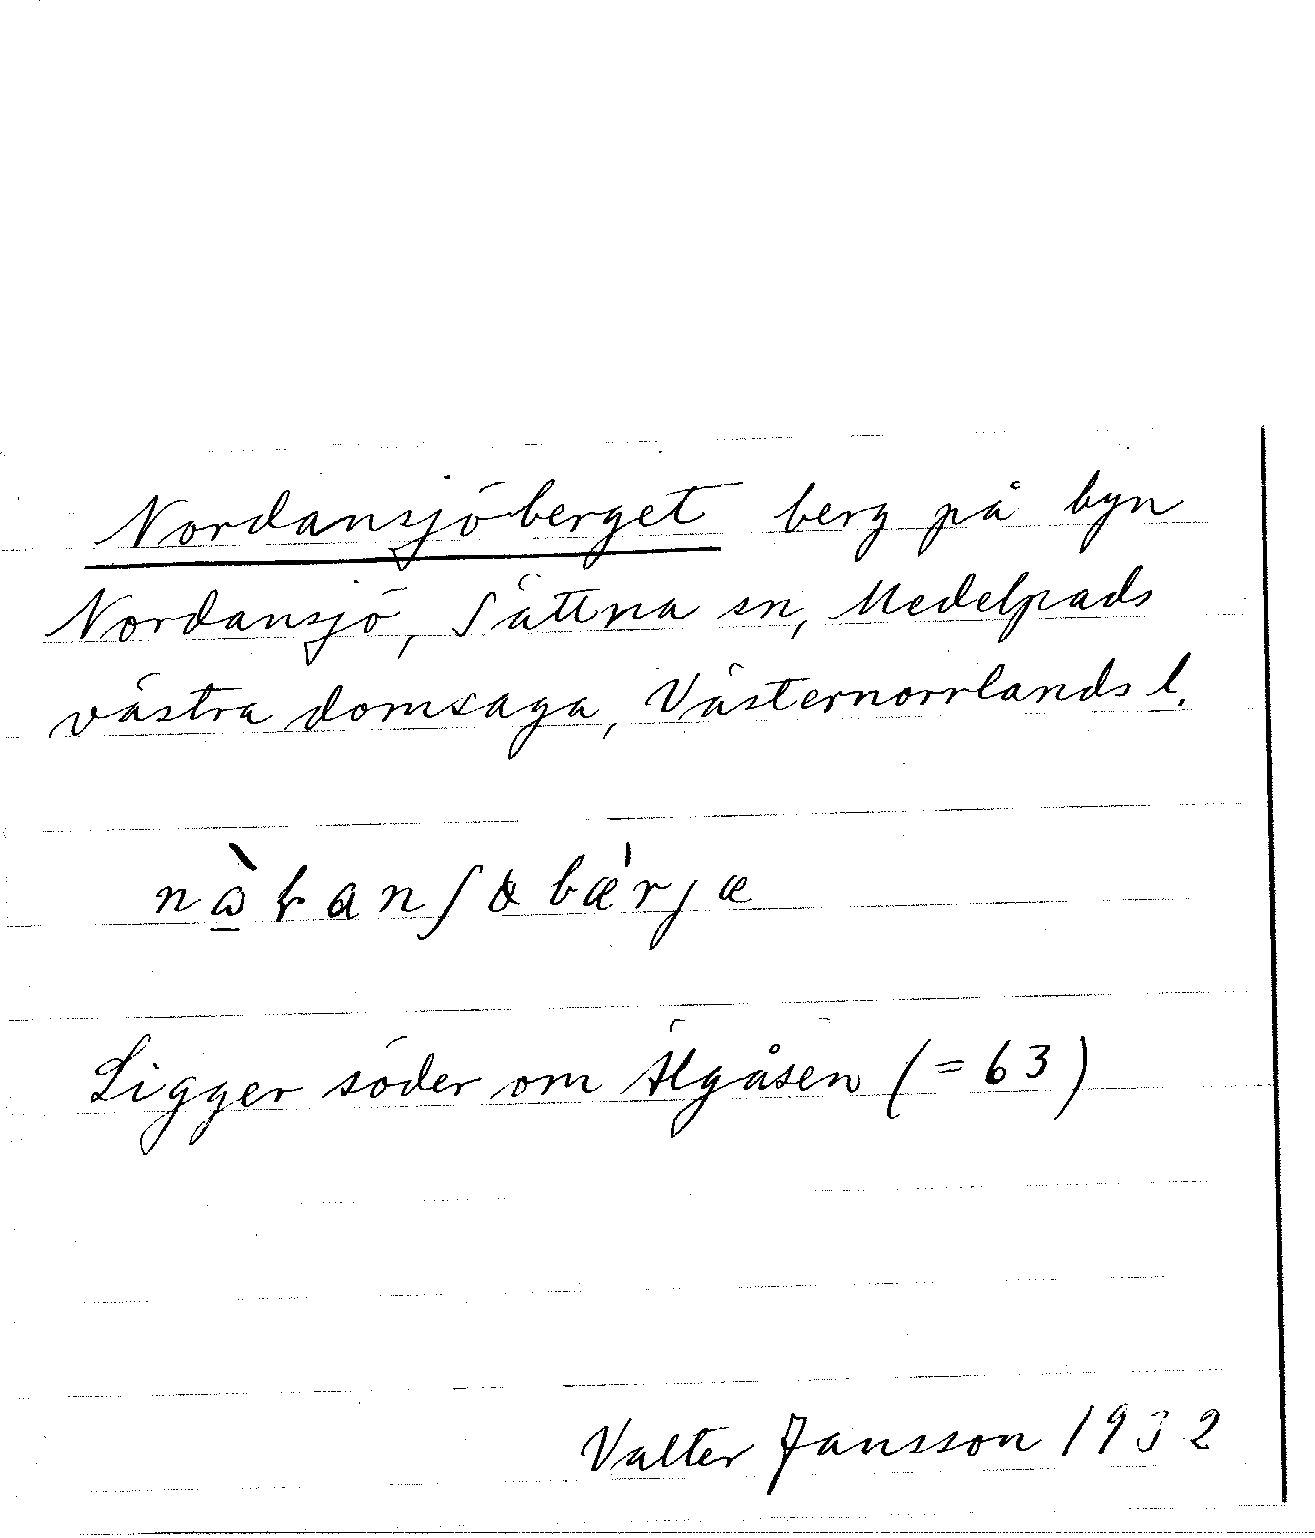 Nordansjöberget berg på byn
Nordansjö, Sättna sn, Medelpads
västra domsaga, Västernorrlands l.
Ligger söder om Älgåsen (= 63)
Valter Jansson 1932